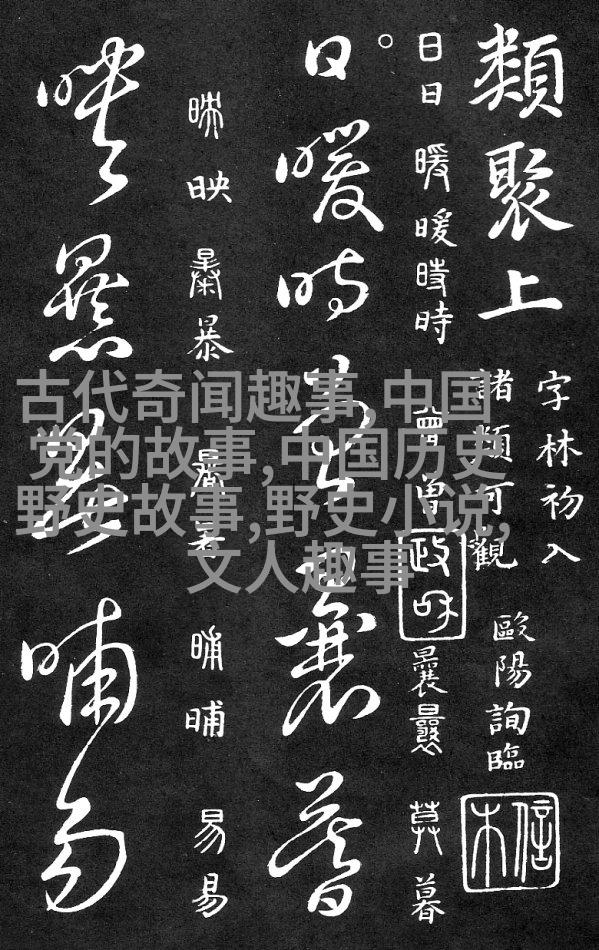 類聚上
字林初入
諸類可觀
歐陽詢臨
日日暖暖時時
政和
莫暮
日暖時
暮
映
暴
晡晡易易
映
晡易
古代奇闻趣事,中国
党的故事,中国历史
野史故事,野史小说,
文人趣事